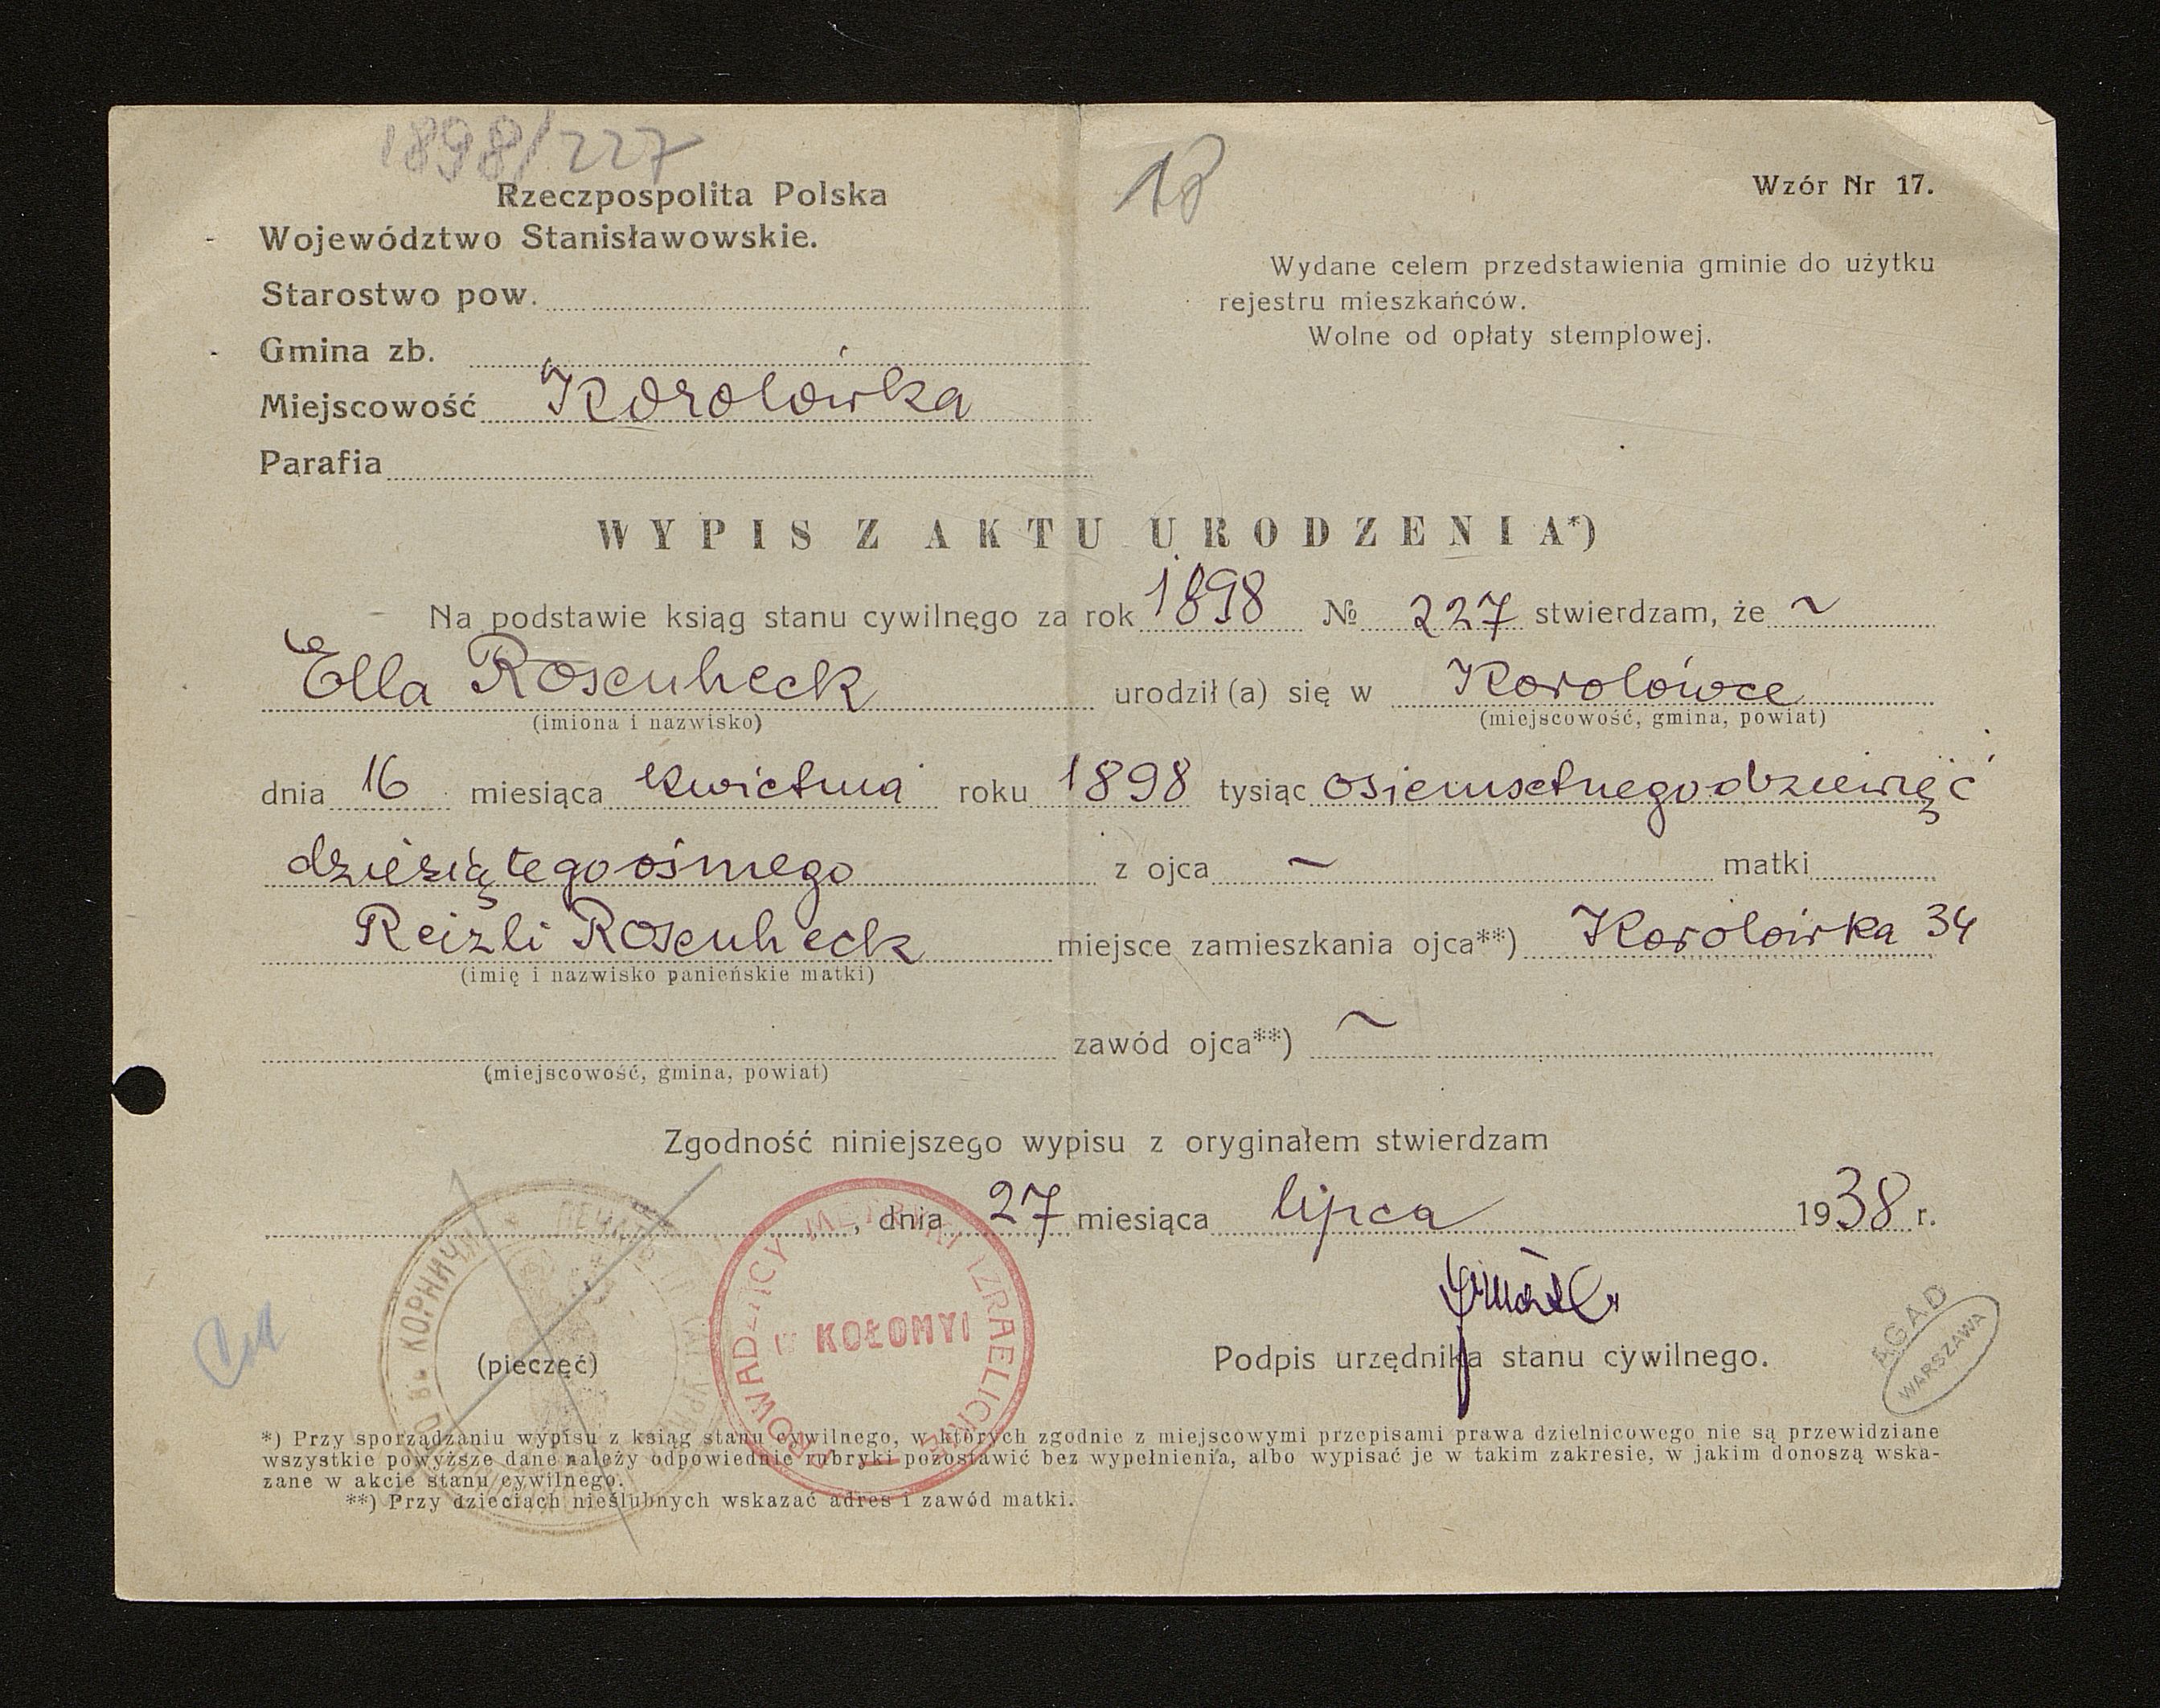 1898/227
18
Wzór Nr 17.
Rzeczpospolita Polska
Województwo Stanisławowskie.
Starostwo pow.
Gmina zb.
Miejscowość Korolówka
Parafia
Wydane celem przedstawienia gminie do użytku
rejestru mieszkańców.
Wolne od opłaty stemplowej.
WYPIS Z AKTU URODZENIA*)
Na podstawie ksiąg stanu cywilnego za rok 1898 № 227 stwierdzam, że ~
Ella Rosenheck urodził (a) się w Korolówce
(imiona i nazwisko) (miejscowość, gmina, powiat)
dnia 16 miesiąca kwietnia roku 1898 tysiąc osiemsetnego dziewięć
dziesiątego ósmego z ojca ~ matki
Reizli Rosenheck miejsce zamieszkania ojca**) Korolówka 34
(imię i nazwisko panieńskie matki)
zawód ojca**) ~
(miejscowość, gmina, powiat)
Zgodność niniejszego wypisu z oryginałem stwierdzam
, dnia 27 miesiąca lipca 1938 r.
(pieczęć)
КОРНИЧ
ПЕЧАТЬ
PROWADZĄCY METRYKI IZRAELICKIE
W KOŁOMYI
Podpis urzędnika stanu cywilnego.
AGAD
WARSZAWA
*) Przy sporządzaniu wypisu z ksiąg stanu cywilnego, w których zgodnie z miejscowymi przepisami prawa dzielnicowego nie są przewidziane
wszystkie powyższe dane należy odpowiednie rubryki pozostawić bez wypełnienia, albo wypisać je w takim zakresie, w jakim donoszą wska-
zane w akcie stanu cywilnego.
**) Przy dzieciach nieślubnych wskazać adres i zawód matki.